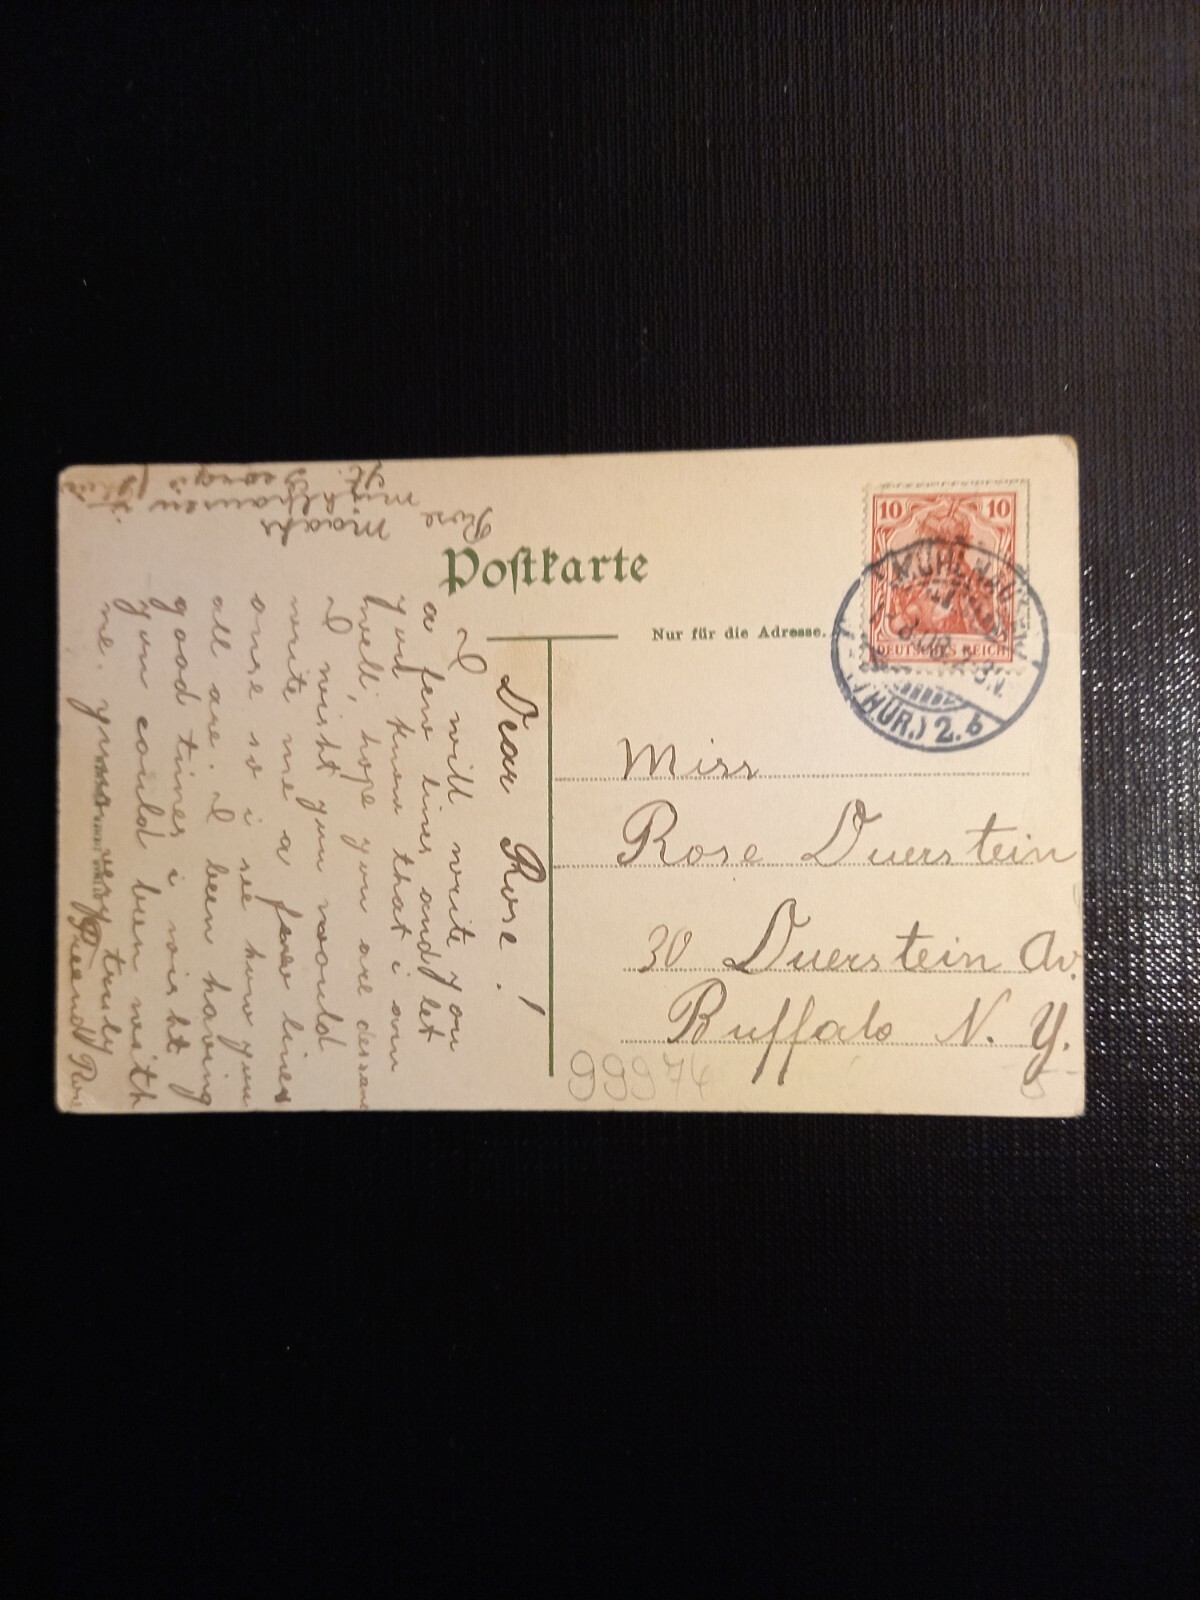 Postkarte
Nur für die Adresse.
10 10
DEUTSCHES REICH
(THÜR.) 2. b
Miss
Rose Duerstein
30 Duerstein Av.
Buffalo N. Y.
99974
Dear Rose!
I will write you
a few lines and let
you know that i am
well, hope you are
I wisht you would
write me a few lines
once so i see how you
all are. I been having
good times i wisht
you could been with
me. yours very truly
Freend
Rose
Maahs